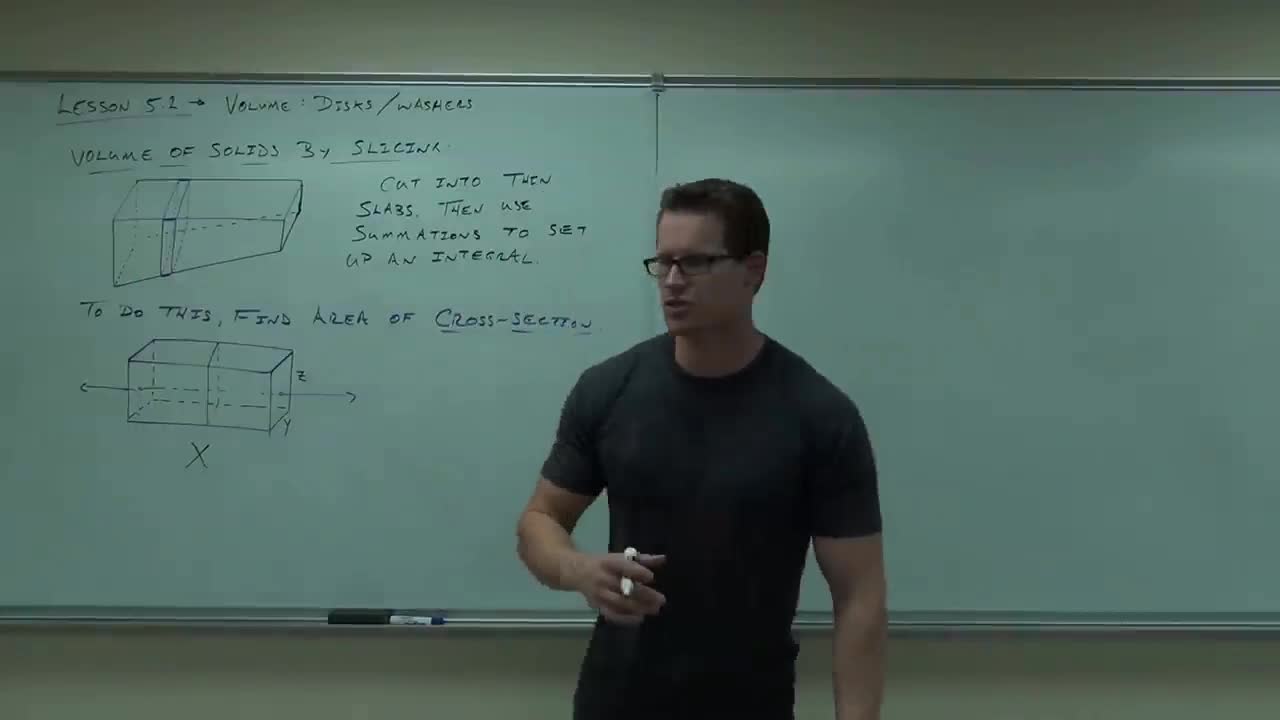 LESSON 5.2 → VOLUME: DISKS/WASHERS
VOLUME OF SOLIDS BY SLICING.
CUT INTO THIN
SLABS, THEN USE
SUMMATIONS TO SET
UP AN INTEGRAL.
TO DO THIS, FIND AREA OF CROSS-SECTION.
Z
Y
X